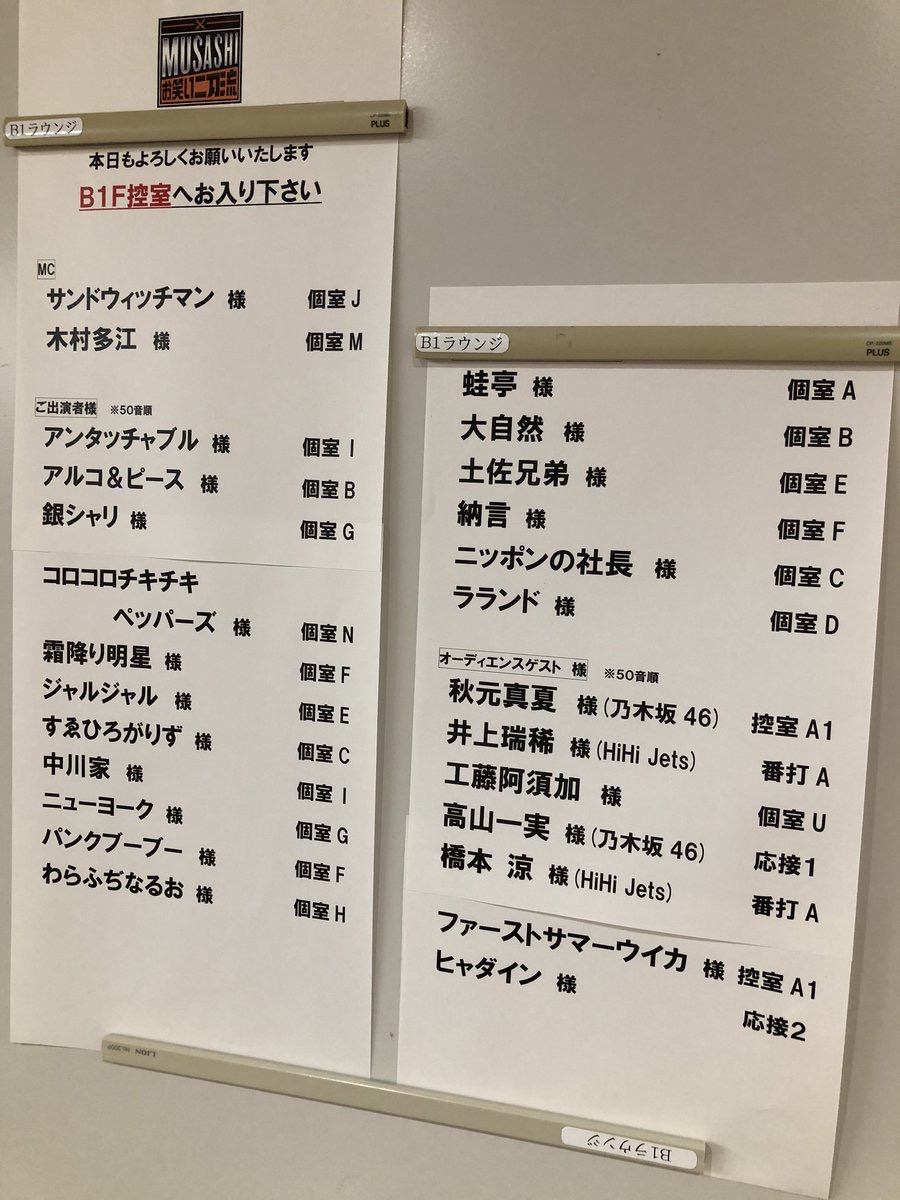 MUSASHI
お笑い二刀流
B1ラウンジ
CP-220MB
PLUS
本日もよろしくお願いいたします
B1F控室へお入り下さい
MC
サンドウィッチマン 様 個室 J
木村多江 様 個室 M
ご出演者様 ※50音順
アンタッチャブル 様 個室 I
アルコ＆ピース 様 個室 B
銀シャリ 様 個室 G
コロコロチキチキ
ペッパーズ 様 個室 N
霜降り明星 様 個室 F
ジャルジャル 様 個室 E
すゑひろがりず 様 個室 C
中川家 様 個室 I
ニューヨーク 様 個室 G
パンクブーブー 様 個室 F
わらふぢなるお 様 個室 H
B1ラウンジ
CP-220MB
PLUS
蛙亭 様 個室 A
大自然 様 個室 B
土佐兄弟 様 個室 E
納言 様 個室 F
ニッポンの社長 様 個室 C
ラランド 様 個室 D
オーディエンスゲスト 様 ※50音順
秋元真夏 様 (乃木坂 46) 控室 A1
井上瑞稀 様 (HiHi Jets) 番打 A
工藤阿須加 様 個室 U
高山一実 様 (乃木坂 46) 応接1
橋本 涼 様 (HiHi Jets) 番打 A
ファーストサマーウイカ 様 控室 A1
ヒャダイン 様 応接2
LION No.300P
B1ラウンジ